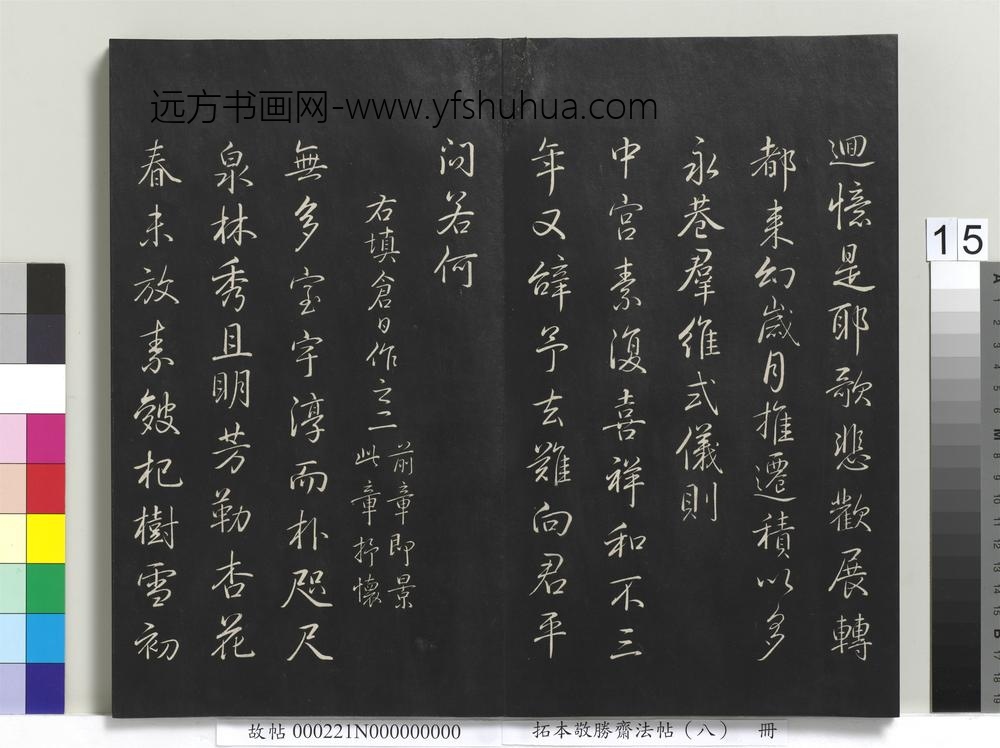 远方书画网-www.yfshuhua.com
迴憶是耶歌悲歡展轉
都来幻歳月推遷積以多
永巷羣維式儀則
中宮素復喜祥和不三
年又辭予去難向君平
问若何
右填倉日作之二
前章即景
此章抒懷
無多室宇淳而朴咫尺
泉林秀且明芳勒杏花
春未放素皴杞樹雪初
15
故帖 000221N000000000
拓本敬勝齋法帖（八） 冊